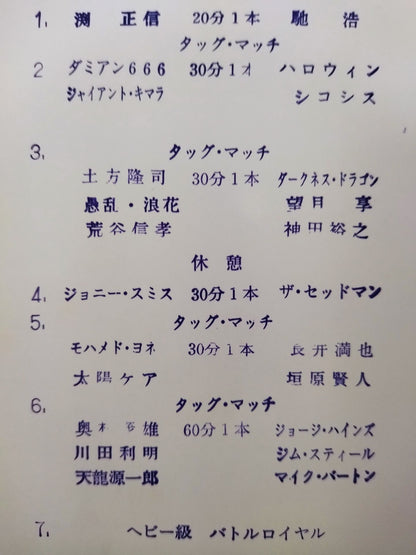 1. 渕 正信 20分1本 馳 浩
タッグ・マッチ
2 ダミアン666 30分1本 ハロウィン
ジャイアント・キマラ シコシス
3. タッグ・マッチ
土方隆司 30分1本 ダークネス・ドラゴン
愚乱・浪花 望月 享
荒谷信孝 神田裕之
休憩
4. ジョニー・スミス 30分1本 ザ・セッドマン
5. タッグ・マッチ
モハメド・ヨネ 30分1本 長井満也
太陽ケア 垣原賢人
6. タッグ・マッチ
奥 雄 60分1本 ジョージ・ハインズ
川田利明 ジム・スティール
天龍源一郎 マイク・バートン
7. ヘビー級 バトルロイヤル